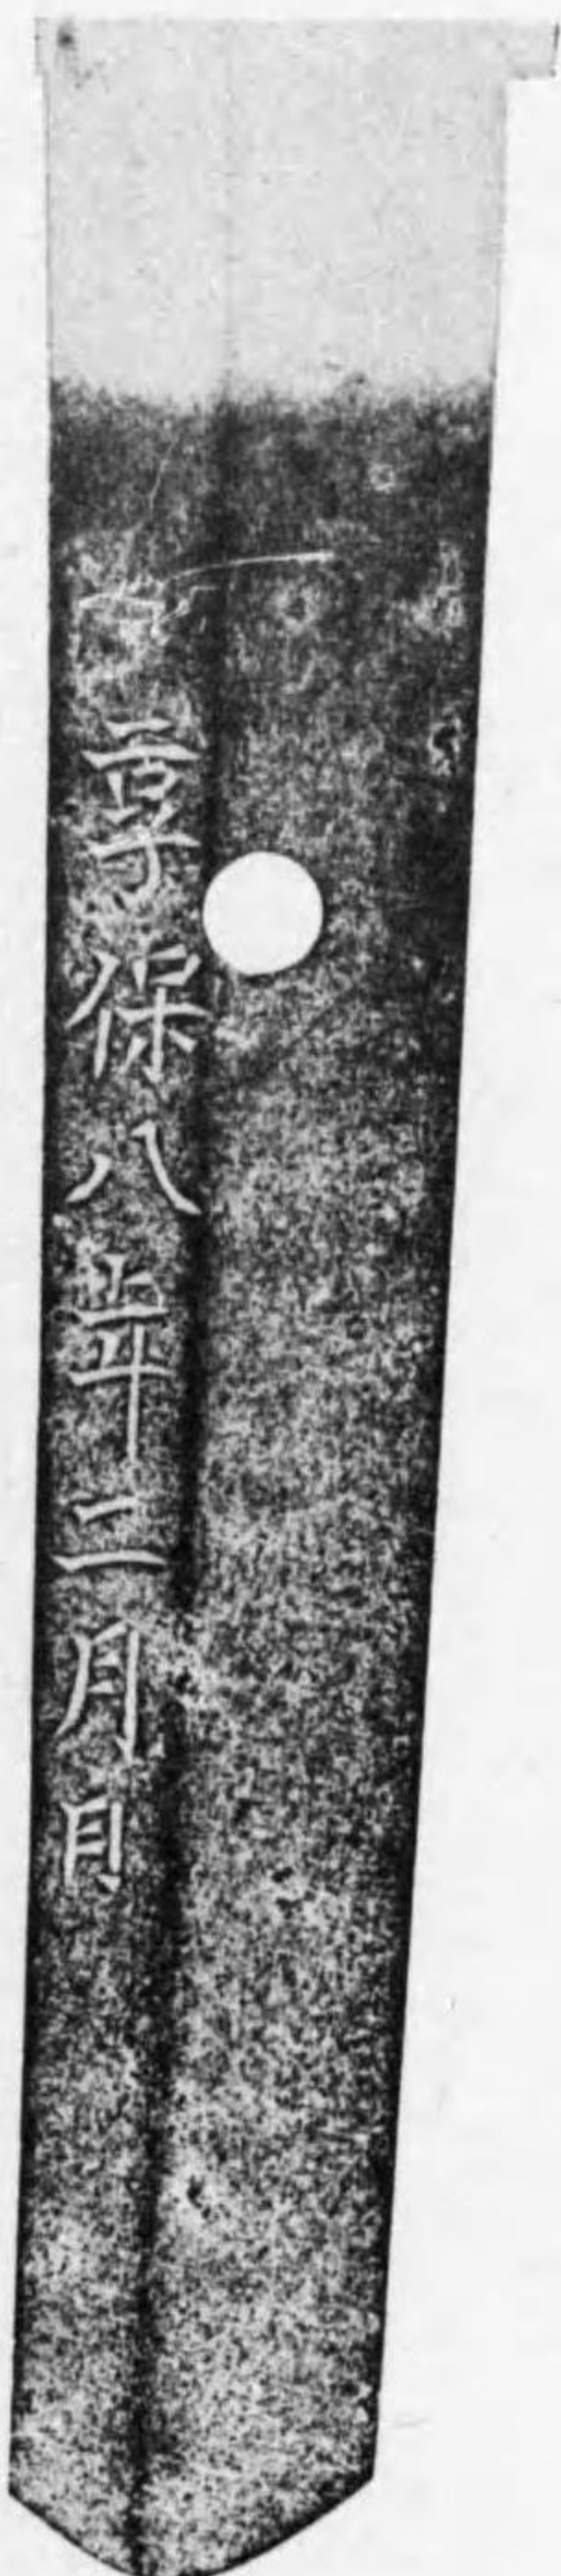 享保八年二月日